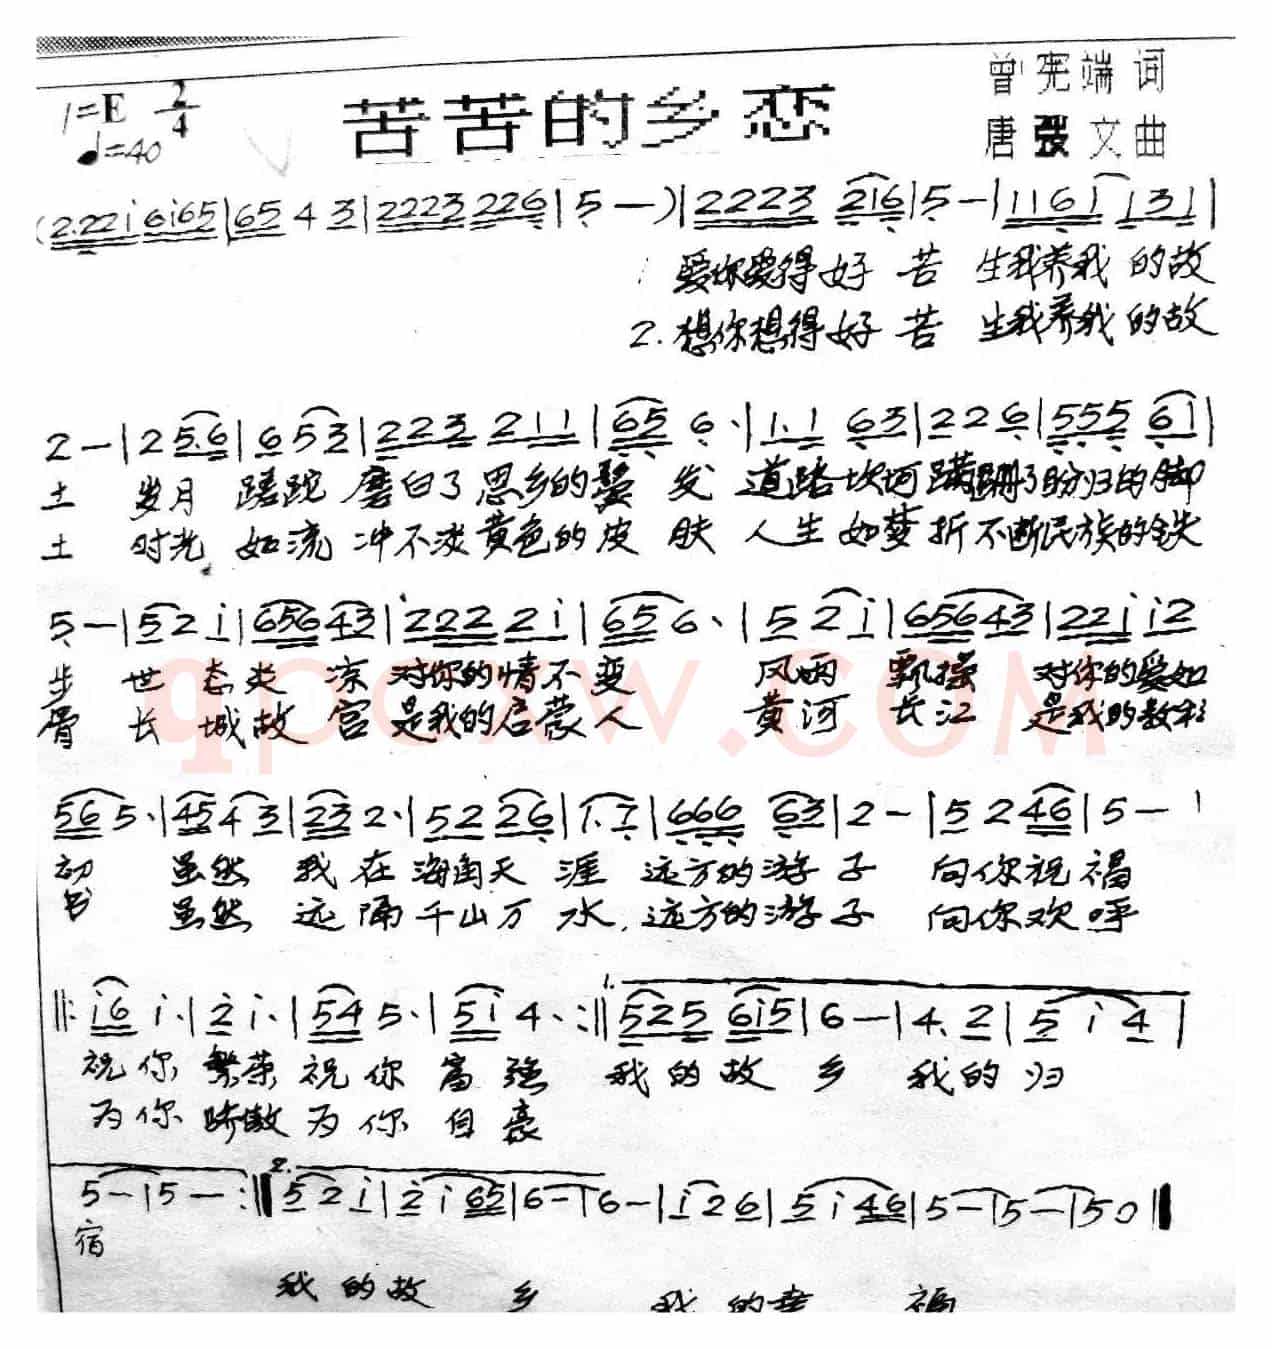 1=E 2/4
♩=40
苦苦的乡恋
曾宪端 词
唐 文 曲
(2.22i 6i65|65 4 3|2223 226|5 —)|2223 216|5 —|1161 131|
1 爱你爱得好 苦 生我养我 的故
2. 想你想得好 苦 生我养我 的故
2 —|2 5.6|6 53|223 211|65 6.|1.1 63|226|555 61|
土 岁月 蹉跎 磨白了思乡的鬓 发 道路坎坷蹒跚了盼归的脚
土 时光 如流 冲不淡黄色的皮 肤 人生如梦折不断民族的铁
5 —|52i|65643|222 2i|656.|52i|65643|22i i2
步 世态炎 凉 对你的情不变 风雨 飘摇 对你的爱如
骨 长城故 宫 是我的启蒙人 黄河 长江 是我的教科
565.|4543|232.|52 26|1.7|666 63|2 —|5 2 46|5 — |
初 虽然 我在海角天 涯 远方的游子 向你祝福
书 虽然 远隔千山万 水, 远方的游子 向你欢呼
‖:i6 i.|2 i.|54 5.|5i 4.:‖1. 525 6i5|6 —|4. 2|5 i 4|
祝你 繁荣 祝你 富强 我的故 乡 我的归
为你 骄傲 为你 自豪
5 —|5 — :‖2. 5 2 i|2 i 65|6 —|6 —|i 2 6|5 i 46|5 —|5 —|5 0‖
宿
我 的故 乡 我 的幸 福
qpcxw.COM